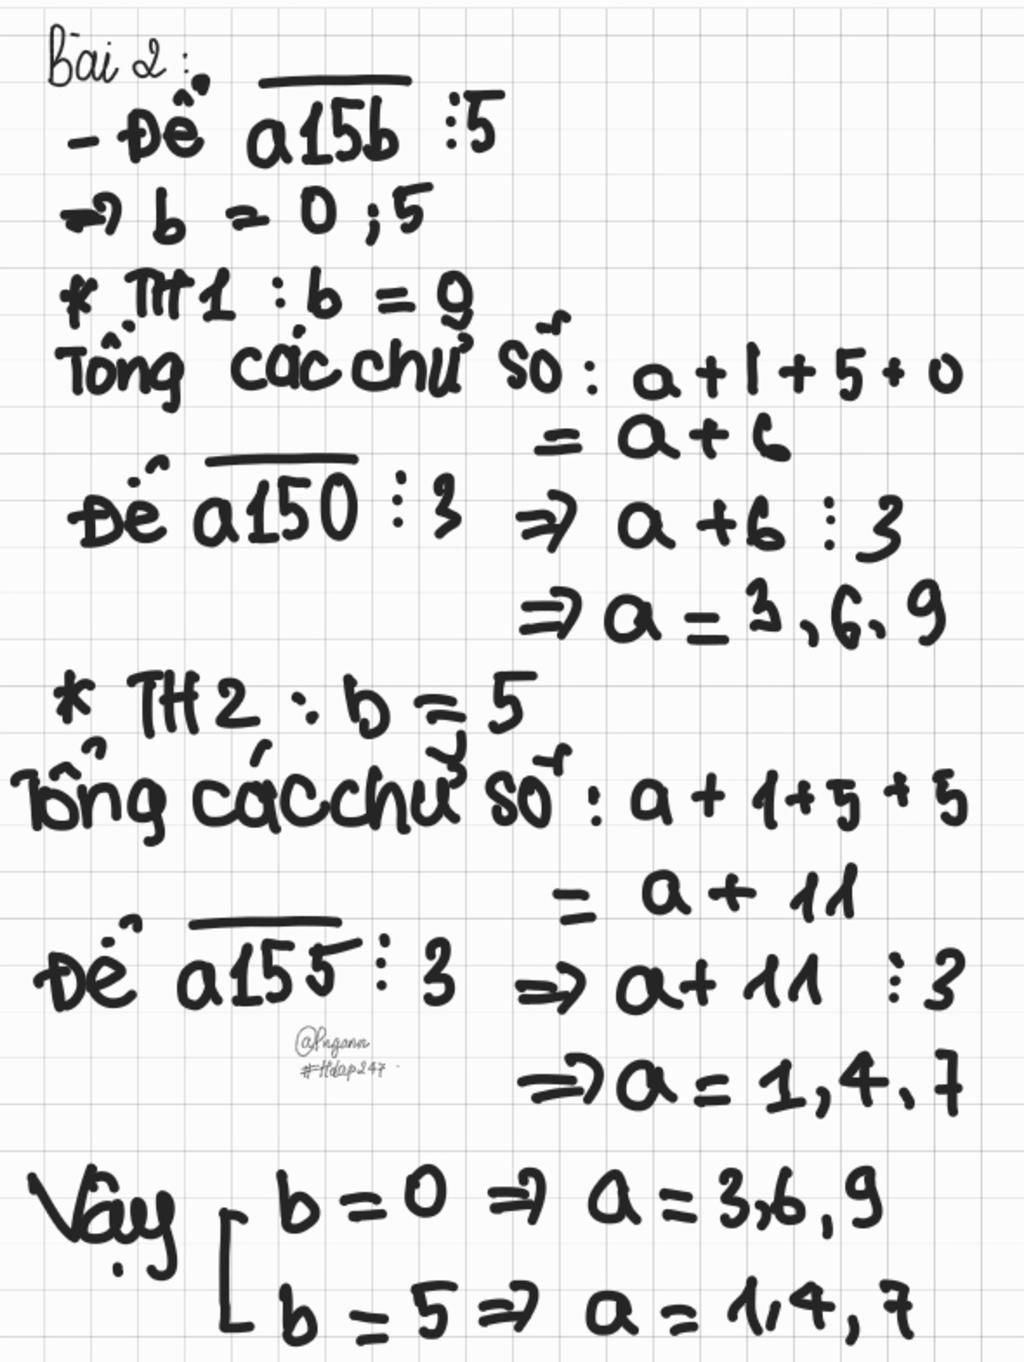 Bài 2:
- Để a15b ⋮ 5
=> b = 0 ; 5
* TH1 : b = 0
Tổng các chữ số : a + 1 + 5 + 0
= a + 6
Để a150 ⋮ 3 => a + 6 ⋮ 3
=> a = 3, 6, 9
* TH2 : b = 5
Tổng các chữ số : a + 1 + 5 + 5
= a + 11
Để a155 ⋮ 3 => a + 11 ⋮ 3
@Pngann
#Hdap247
=> a = 1, 4, 7
Vậy [ b = 0 => a = 3, 6, 9
b = 5 => a = 1, 4, 7